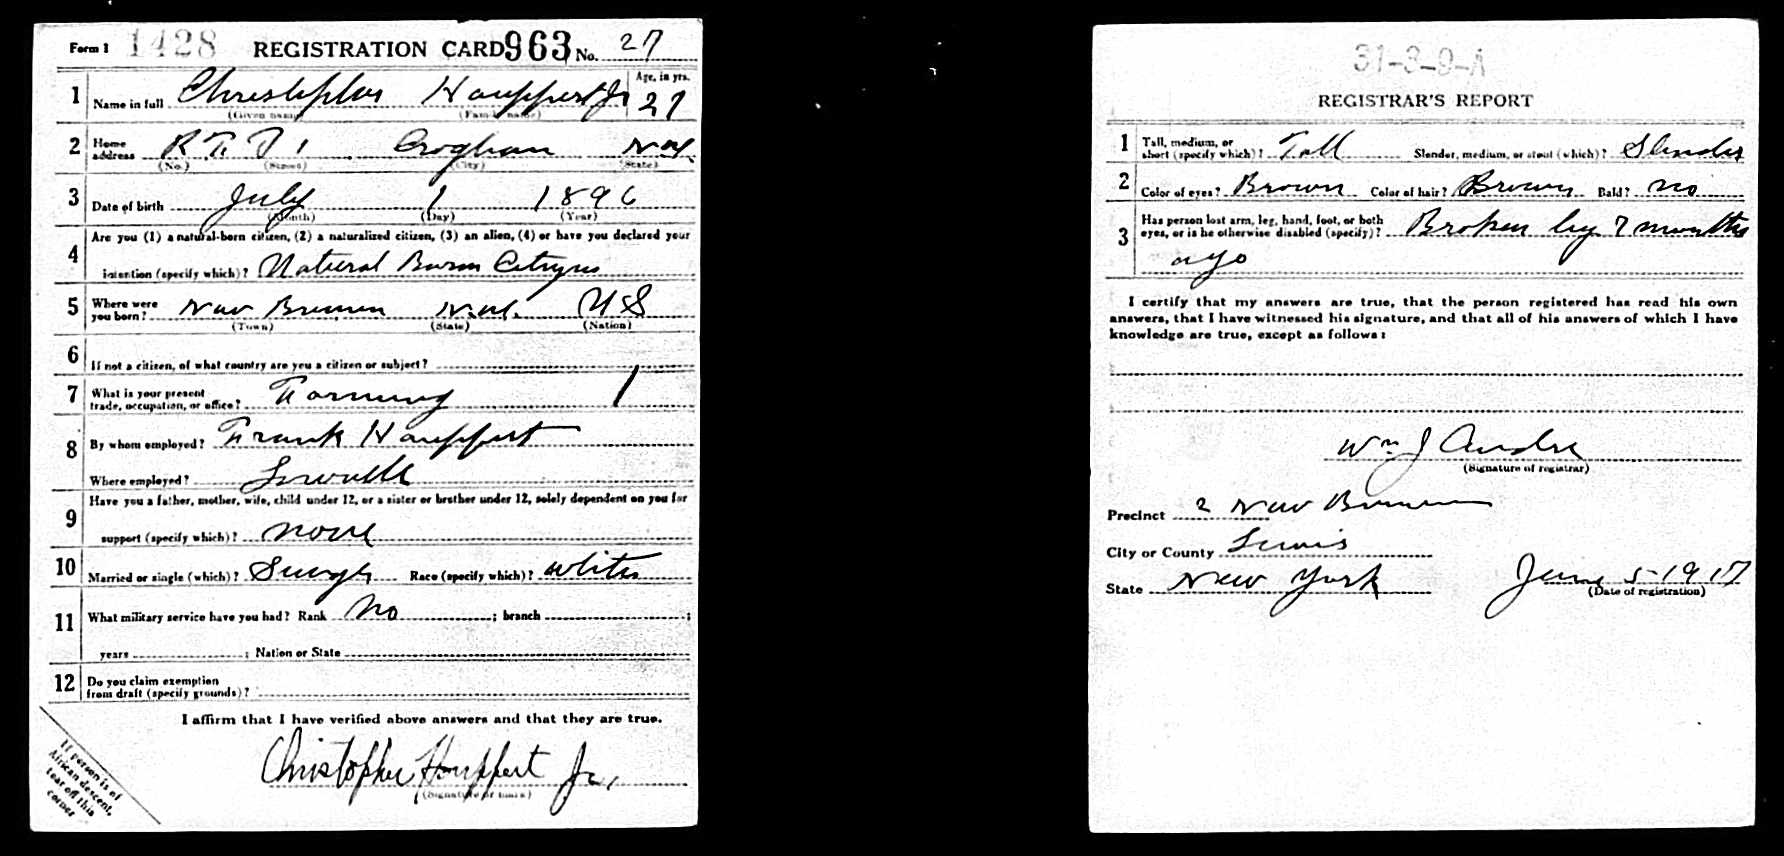 Form 1 1428 REGISTRATION CARD 963 No. 27
1 Name in full Christopher Houppert Jr Age, in yrs. 27
(Given name) (Family name)
2 Home address R F D 1 Croghan N.Y.
(No.) (Street) (City) (State)
3 Date of birth July 1 1896
(Month) (Day) (Year)
Are you (1) a natural-born citizen, (2) a naturalized citizen, (3) an alien, (4) or have you declared your
4 intention (specify which)? Natural Born
5 Where were you born? New Bremen N.Y. U S
(Town) (State) (Nation)
6 If not a citizen, of what country are you a citizen or subject?
7 What is your present trade, occupation, or office? Farming 1
8 By whom employed? Frank Houppert
Where employed?
Have you a father, mother, wife, child under 12, or a sister or brother under 12, solely dependent on you for
9 support (specify which)? None
10 Married or single (which)? Single Race (specify which)? White
11 What military service have you had? Rank No ; branch ;
years ; Nation or State
12 Do you claim exemption from draft (specify grounds)?
I affirm that I have verified above answers and that they are true.
Christopher Houppert Jr.
(Signature or mark)
If person is of
African descent,
tear off this
corner
31-3-9-A
REGISTRAR'S REPORT
1 Tall, medium, or short (specify which)? Tall Slender, medium, or stout (which)? Slender
2 Color of eyes? Brown Color of hair? Brown Bald? No
3 Has person lost arm, leg, hand, foot, or both eyes, or is he otherwise disabled (specify)? Broken leg 7 months
ago
I certify that my answers are true, that the person registered has read his own
answers, that I have witnessed his signature, and that all of his answers of which I have
knowledge are true, except as follows:
Wm J Andre
(Signature of registrar)
Precinct 2 New Bremen
City or County Lewis
State New York June 5-1917
(Date of registration)